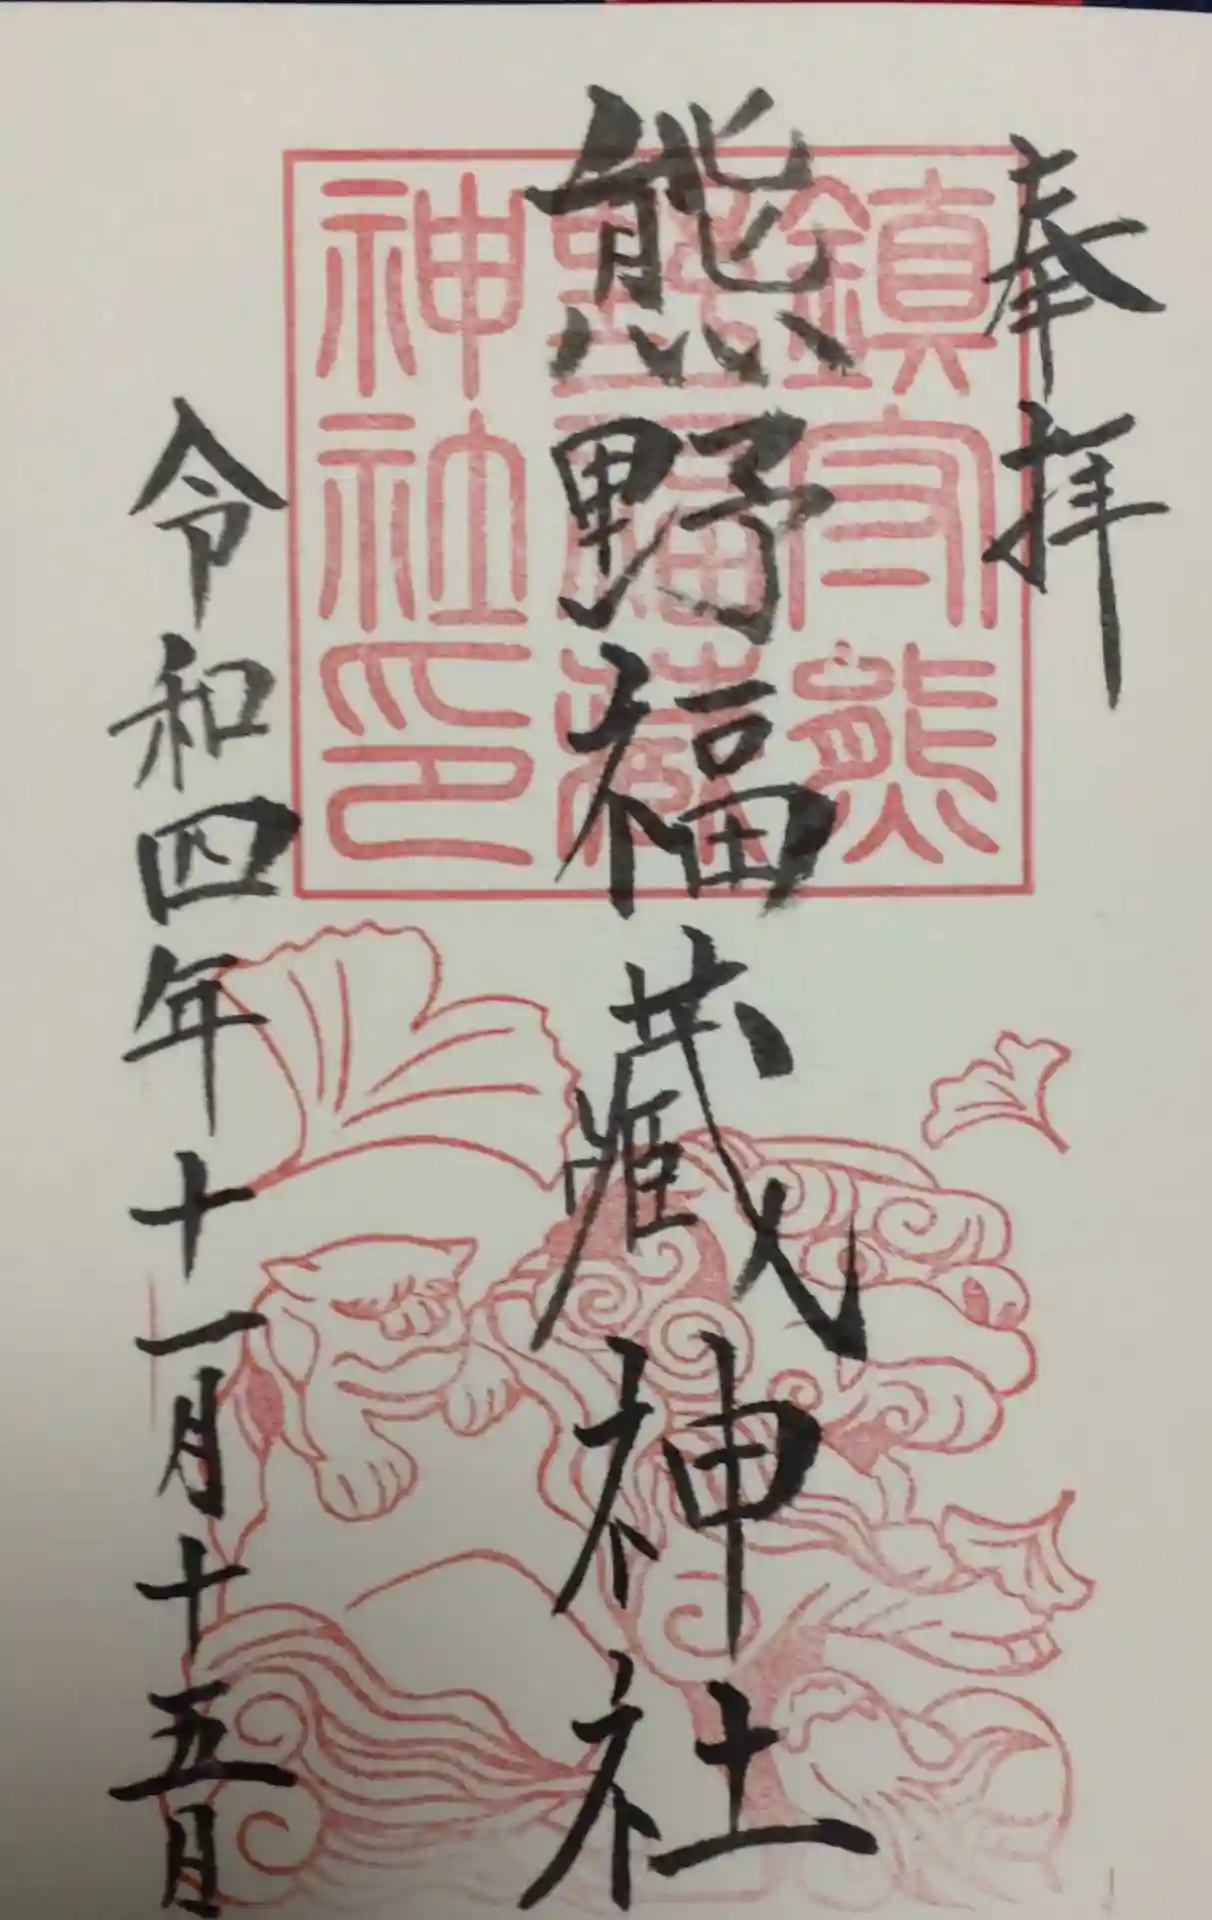 奉拝
鎮守熊
野福藏
神社印
熊野福藏神社
令和四年十一月十五日